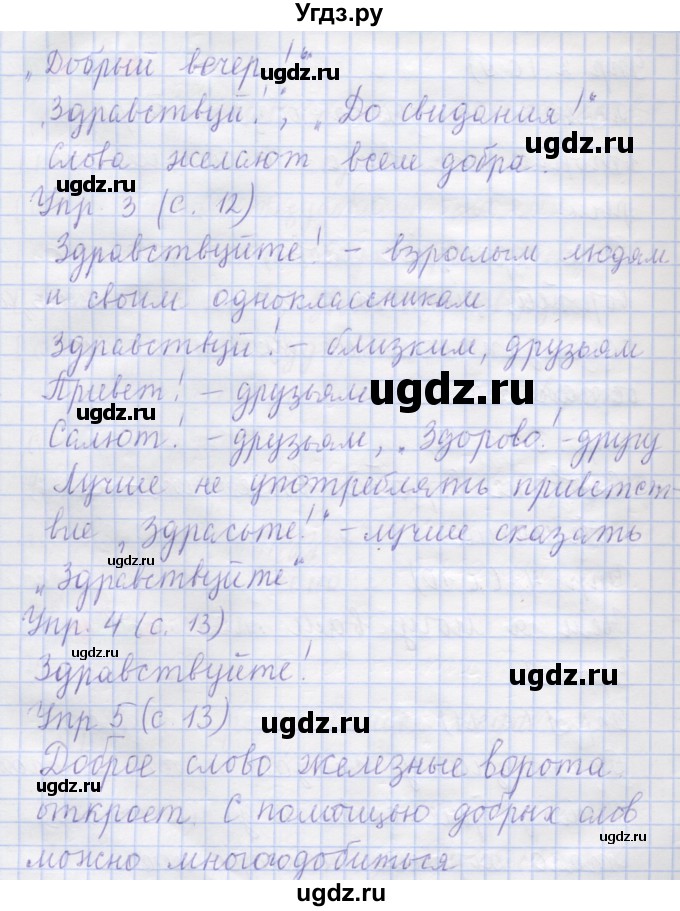 Угдз.ру
„Добрый вечер!“
„Здравствуй!“, „До свидания!“
Слова желают всем добра.
Упр. 3 (с. 12)
Здравствуйте! – взрослым людям
и своим одноклассникам
Здравствуй! – близким, друзьям
Привет! – друзьям
Салют! – друзьям, „Здорово! – другу
Лучше не употреблять приветст-
вие „Здрасьте!“ – лучше сказать
„Здравствуйте“
Упр. 4 (с. 13)
Здравствуйте!
Упр 5 (с 13)
Доброе слово железные ворота
откроет. С помощью добрых слов
можно многого добиться
ugdz.ru
ugdz.ru
ugdz.ru
ugdz.ru
ugdz.ru
ugdz.ru
ugdz.ru
ugdz.ru
ugdz.ru
ugdz.ru
ugdz.ru
ugdz.ru